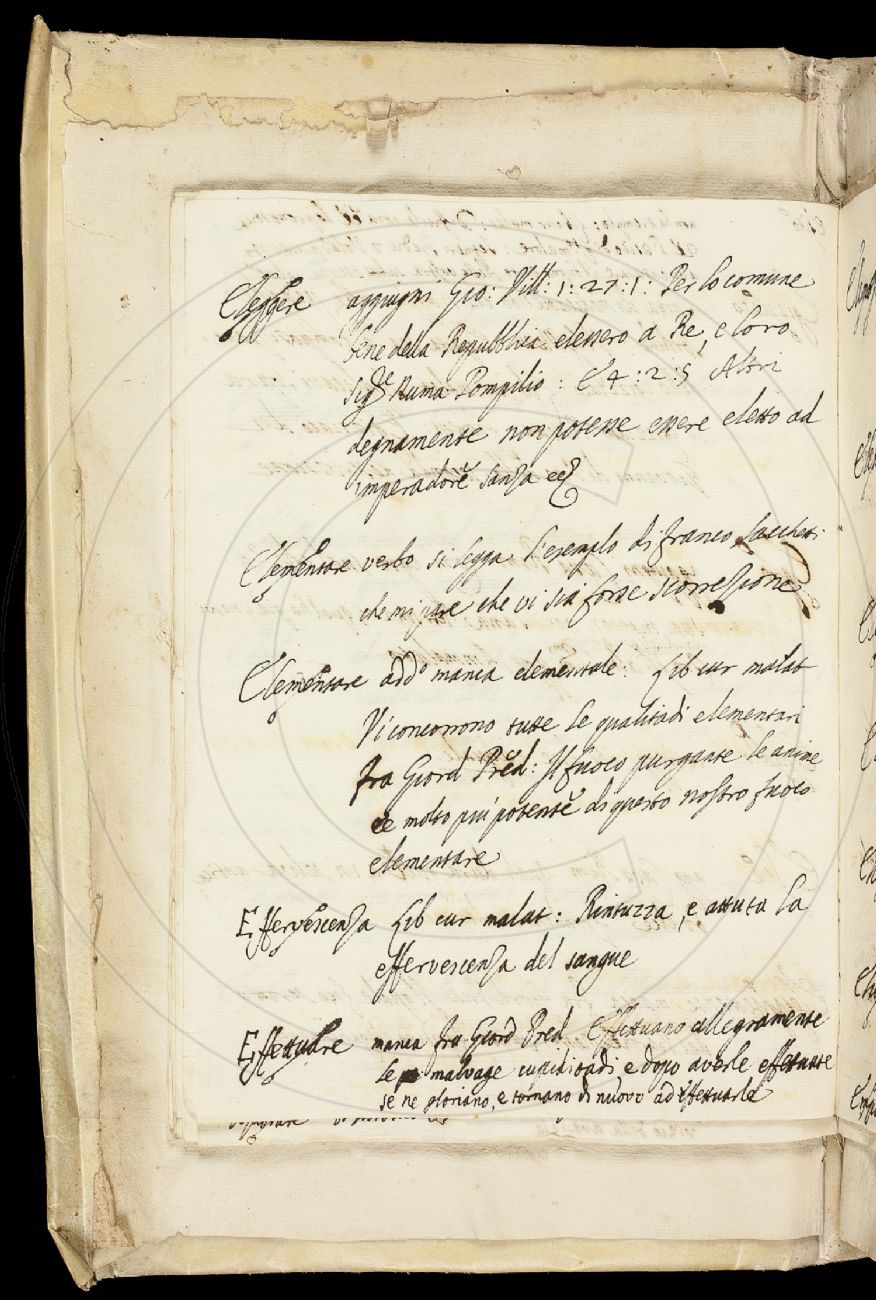 Eleggere aggiugni Gio: Vill: 1: 27: 1: Per lo comune
bene della Repubblica elessero a Re, e loro
Sig.re Numa Pompilio: E 4: 2: 5 Altri
degnamente non potesse essere eletto ad
imperadore sanza ec
Elementare verbo si legga l'esemplo di franco Sacchetti
che mi pare che vi sia forse scorrezione
Elementare add.o manca elementale: Lib cur malat
Vi concorrono tutte le qualitadi elementari
fra Giord Pred: Il fuoco purgante le anime
ee molto più potente di questo nostro fuoco
elementare
Effervescenza Lib cur malat: Rintuzza, e attuta la
effervescenza del sangue
Effettuare manca fra Giord Pred Effettuano allegramente
le malvage cupiditadi e dopo averle effettuate
se ne gloriano, e tornano di nuovo ad effettuarle